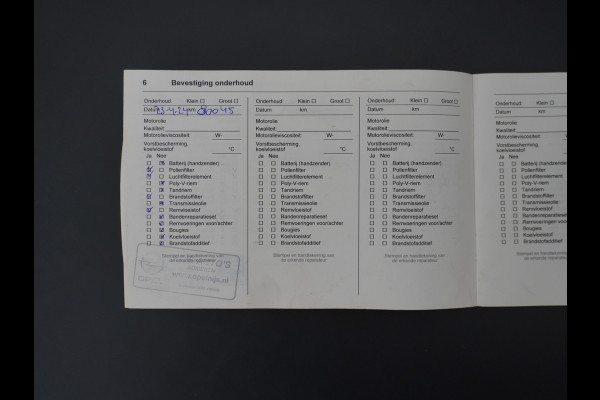 6 Bevestiging onderhoud
Onderhoud: Klein ☐ Groot ☐
Datum km
Motorolie
Kwaliteit:
Motorolieviscositeit: W-
Vorstbescherming,
koelvloeistof °C
Ja Nee
Batterij (handzender)
Pollenfilter
Luchtfilterelement
Poly-V-riem
Tandriem
Brandstoffilter
Transmissieolie
Remvloeistof
Bandenreparatieset
Remvoeringen voor/achter
Bougies
Koelvloeistof
Brandstofadditief
Stempel en handtekening van
de erkende reparateur
Onderhoud: Klein ☐ Groot ☐
Datum km
Motorolie
Kwaliteit:
Motorolieviscositeit: W-
Vorstbescherming,
koelvloeistof °C
Ja Nee
Batterij (handzender)
Pollenfilter
Luchtfilterelement
Poly-V-riem
Tandriem
Brandstoffilter
Transmissieolie
Remvloeistof
Bandenreparatieset
Remvoeringen voor/achter
Bougies
Koelvloeistof
Brandstofadditief
Stempel en handtekening van
de erkende reparateur
Onderhoud: Klein ☐ Groot ☐
Datum km
Motorolie
Kwaliteit:
Motorolieviscositeit: W-
Vorstbescherming,
koelvloeistof °C
Ja Nee
Batterij (handzender)
Pollenfilter
Luchtfilterelement
Poly-V-riem
Tandriem
Brandstoffilter
Transmissieolie
Remvloeistof
Bandenreparatieset
Remvoeringen voor/achter
Bougies
Koelvloeistof
Brandstofadditief
Stempel en handtekening van
de erkende reparateur
Onderhoud: Klein ☐
Datum km
Motorolie
Kwaliteit:
Motorolieviscositeit: W-
Vorstbescherming,
koelvloeistof
Ja Nee
Batterij (handzender)
Pollenfilter
Luchtfilterelement
Poly-V-riem
Tandriem
Brandstoffilter
Transmissieolie
Remvloeistof
Bandenreparatieset
Remvoeringen voor/achter
Bougies
Koelvloeistof
Brandstofadditief
Stempel en handtekening van
de erkende reparateur